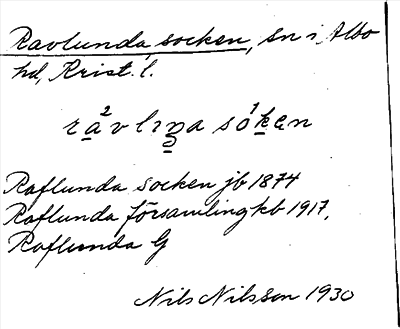 Ravlunda socken, sn i Albo
hd, Krist. l.
ra²vlına so¹ken
Raflunda socken jb 1874
Raflunda församling kb 1917,
Raflunda G
Nils Nilsson 1930